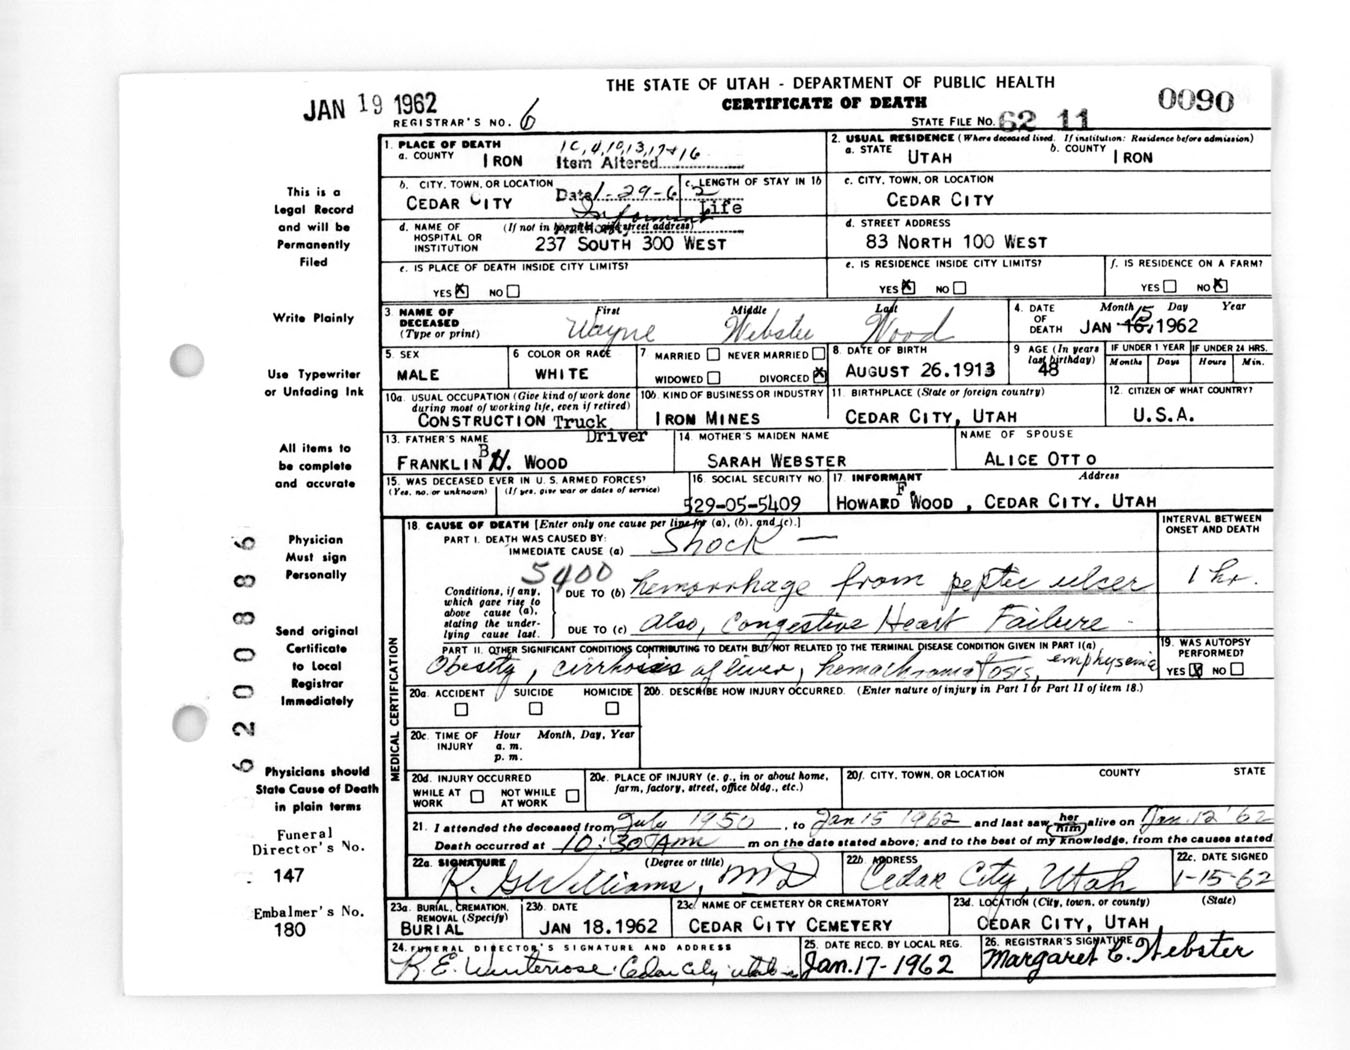 THE STATE OF UTAH - DEPARTMENT OF PUBLIC HEALTH
CERTIFICATE OF DEATH
JAN 19 1962
0090
REGISTRAR'S NO. 6
STATE FILE NO. 62 11
1. PLACE OF DEATH
a. COUNTY IRON
1C, 4, 10, 13, 17 + 16
Item Altered
2. USUAL RESIDENCE (Where deceased lived. If institution: Residence before admission)
a. STATE UTAH
b. COUNTY IRON
b. CITY, TOWN, OR LOCATION
CEDAR CITY
Date 1-29-62
Informant
Authority
c. LENGTH OF STAY IN 1b
Life
c. CITY, TOWN, OR LOCATION
CEDAR CITY
d. NAME OF HOSPITAL OR INSTITUTION
(If not in hospital, give street address)
237 SOUTH 300 WEST
d. STREET ADDRESS
83 NORTH 100 WEST
e. IS PLACE OF DEATH INSIDE CITY LIMITS?
YES X NO
e. IS RESIDENCE INSIDE CITY LIMITS?
YES X NO
f. IS RESIDENCE ON A FARM?
YES NO X
3. NAME OF DECEASED (Type or print)
First Middle Last
Wayne Webster Wood
4. DATE OF DEATH
Month Day Year
15
JAN 16, 1962
5. SEX
MALE
6 COLOR OR RACE
WHITE
7 MARRIED NEVER MARRIED
WIDOWED DIVORCED X
8. DATE OF BIRTH
AUGUST 26.1913
9 AGE (In years last birthday)
48
IF UNDER 1 YEAR
Months Days
IF UNDER 24 HRS.
Hours Min.
10a. USUAL OCCUPATION (Give kind of work done during most of working life, even if retired)
CONSTRUCTION Truck
Driver
10b. KIND OF BUSINESS OR INDUSTRY
IRON MINES
11. BIRTHPLACE (State or foreign country)
CEDAR CITY, UTAH
12. CITIZEN OF WHAT COUNTRY?
U.S.A.
13. FATHER'S NAME
B
FRANKLIN H. WOOD
14. MOTHER'S MAIDEN NAME
SARAH WEBSTER
NAME OF SPOUSE
ALICE OTTO
15. WAS DECEASED EVER IN U.S. ARMED FORCES?
(Yes, no, or unknown) (If yes, give war or dates of service)
16. SOCIAL SECURITY NO.
529-05-5409
17. INFORMANT Address
F.
HOWARD WOOD , CEDAR CITY. UTAH
18. CAUSE OF DEATH [Enter only one cause per line for (a), (b), and (c).]
INTERVAL BETWEEN ONSET AND DEATH
PART I. DEATH WAS CAUSED BY:
IMMEDIATE CAUSE (a) Shock —
5400
Conditions, if any, which gave rise to above cause (a), stating the underlying cause last.
DUE TO (b) hemorrhage from peptic ulcer
1 hr.
DUE TO (c) also, Congestive Heart Failure -
PART II. OTHER SIGNIFICANT CONDITIONS CONTRIBUTING TO DEATH BUT NOT RELATED TO THE TERMINAL DISEASE CONDITION GIVEN IN PART I(a)
Obesity, cirrhosis of liver, hemachromatosis, emphysema
19. WAS AUTOPSY PERFORMED?
YES X NO
20a. ACCIDENT SUICIDE HOMICIDE
20b. DESCRIBE HOW INJURY OCCURRED. (Enter nature of injury in Part I or Part II of item 18.)
20c. TIME OF INJURY
Hour Month, Day, Year
a. m.
p. m.
20d. INJURY OCCURRED
WHILE AT WORK NOT WHILE AT WORK
20e. PLACE OF INJURY (e. g., in or about home, farm, factory, street, office bldg., etc.)
20f. CITY, TOWN, OR LOCATION COUNTY STATE
21. I attended the deceased from July 1950, to Jan 15 1962 and last saw her him alive on Jan. 12 '62
Death occurred at 10:30 AM m on the date stated above; and to the best of my knowledge, from the causes stated
22a. SIGNATURE (Degree or title)
R. G. Williams, MD
22b. ADDRESS
Cedar City, Utah
22c. DATE SIGNED
1-15-62
23a. BURIAL, CREMATION, REMOVAL (Specify)
BURIAL
23b. DATE
JAN 18.1962
23c. NAME OF CEMETERY OR CREMATORY
CEDAR CITY CEMETERY
23d. LOCATION (City, town, or county) (State)
CEDAR CITY, UTAH
24. FUNERAL DIRECTOR'S SIGNATURE AND ADDRESS
R. E. Winterrose Cedar City Utah
25. DATE RECD. BY LOCAL REG.
Jan. 17-1962
26. REGISTRAR'S SIGNATURE
Margaret C. Webster
MEDICAL CERTIFICATION
This is a
Legal Record
and will be
Permanently
Filed
Write Plainly
Use Typewriter
or Unfading Ink
All items to
be complete
and accurate
Physician
Must sign
Personally
Send original
Certificate
to Local
Registrar
Immediately
Physicians should
State Cause of Death
in plain terms
Funeral
Director's No.
147
Embalmer's No.
180
62008386